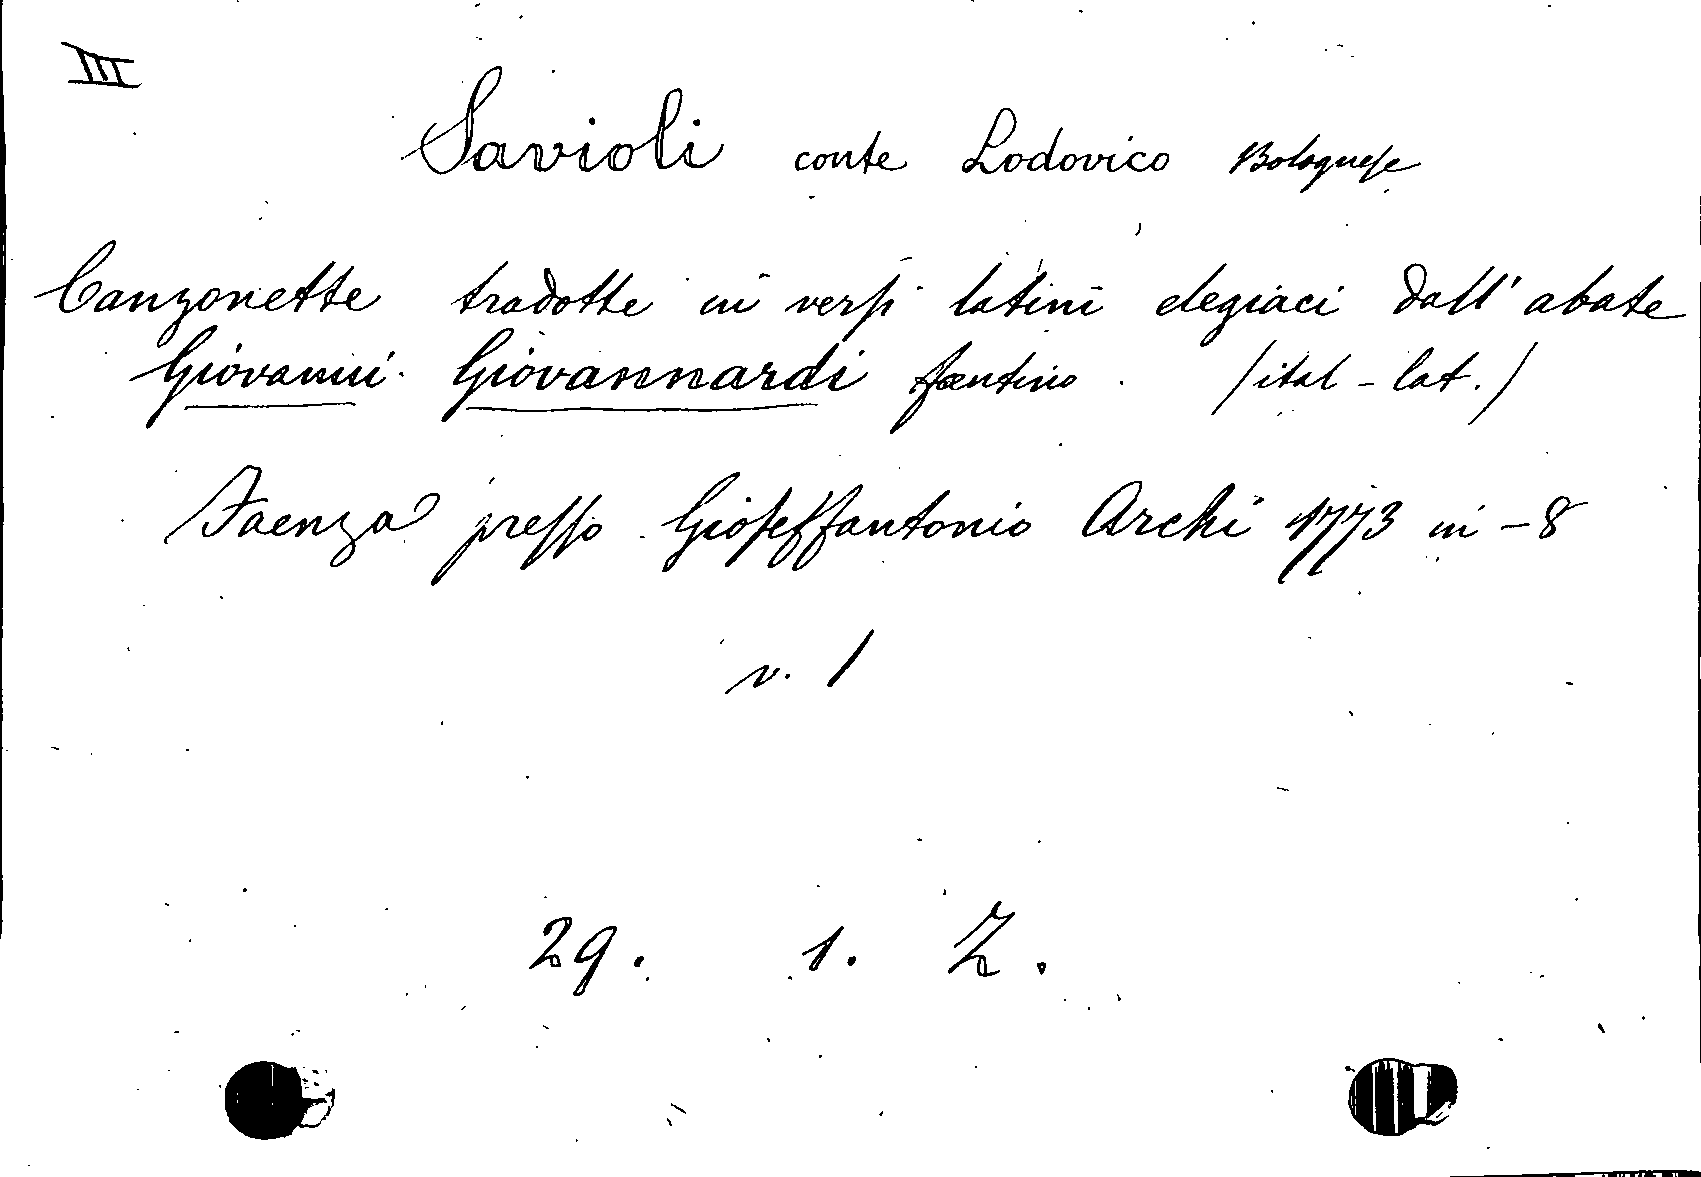 III
Savioli conte Lodovico Bolognese
Canzonette tradotte in versi latini elegiaci dall' abate
Giovanni Giovannardi faentino. (ital - lat.)
Faenza presso Gioseffantonio Archi 1773 in - 8
v. 1
29. 1. Z.